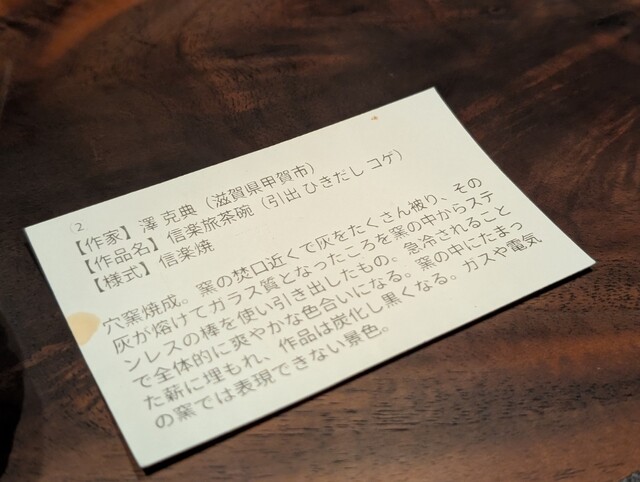 ②
【作家】澤 克典（滋賀県甲賀市）
【作品名】信楽旅茶碗（引出 ひきだし コゲ）
【様式】信楽焼
穴窯焼成。窯の焚口近くで灰をたくさん被り、その
灰が熔けてガラス質となったころを窯の中からステ
ンレスの棒を使い引き出したもの。急冷されること
で全体的に爽やかな色合いになる。窯の中にたまっ
た薪に埋もれ、作品は炭化し黒くなる。ガスや電気
の窯では表現できない景色。